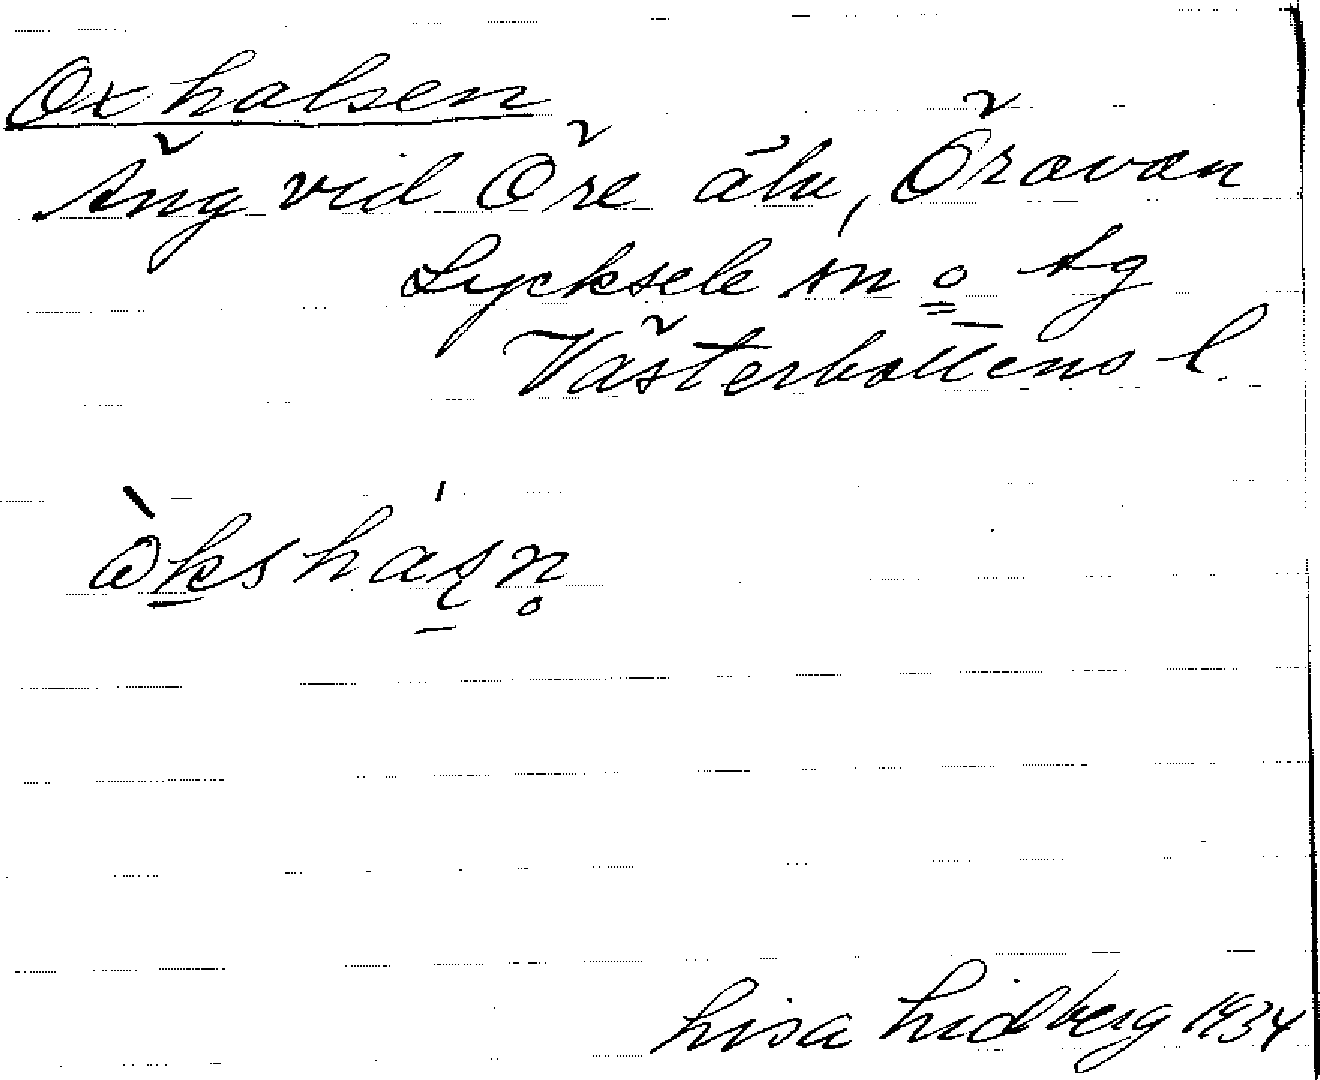 Oxhalsen
Äng vid Öre älv, Öravan
Lycksele sn o. hg
Västerbottens l.
òkshásn
Lisa Lidberg 1934